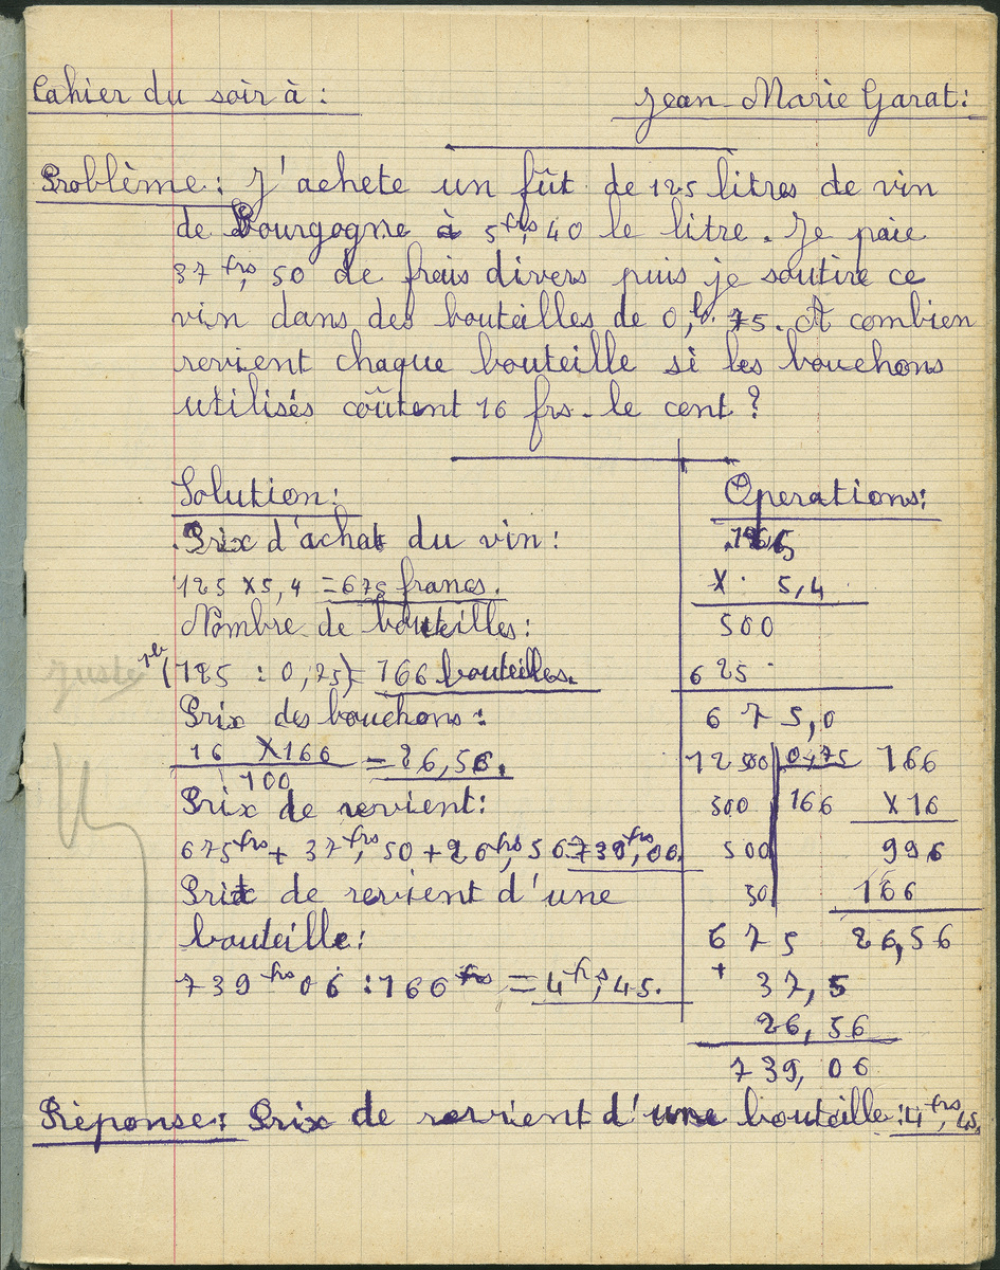 Cahier du soir à :
Jean-Marie Garat :
Problème : J'achete un fût de 125 litres de vin
de Bourgogne à 5 frs, 40 le litre. Je paie
37 frs, 50 de frais divers puis je soutire ce
vin dans des bouteilles de 0, l. 75. A combien
revient chaque bouteille si les bouchons
utilisés coûtent 16 frs. le cent ?
Solution :
Prix d'achat du vin :
125 X 5,4 = 675 francs.
Nombre de bouteilles :
juste
1 b (125 : 0,75) = 166 bouteilles.
Prix des bouchons :
16 X 166
= 26,56.
100
Prix de revient :
675 frs + 37 frs, 50 + 26 frs, 56 = 739 frs, 06.
Prix de revient d'une
bouteille :
739 frs 06 : 166 frs = 4 frs, 45.
Operations :
X 5,4
500
625
675,0
12500 0,75
500 166
500
50
166
X 16
996
166
26,56
675
+ 37,5
26,56
739,06
Réponse : Prix de revient d'une bouteille : 4 frs, 45.